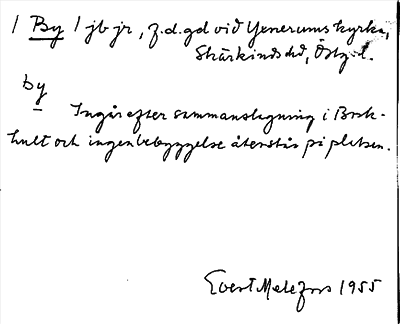 / By / jb jr, f.d.gd vid Yenerums kyrka,
Skärkinds hd, Östg. l.
by
Ingår efter sammanslagning i Bock-
hult och ingen bebyggelse återstår på platsen.
Evert Melefors 1955